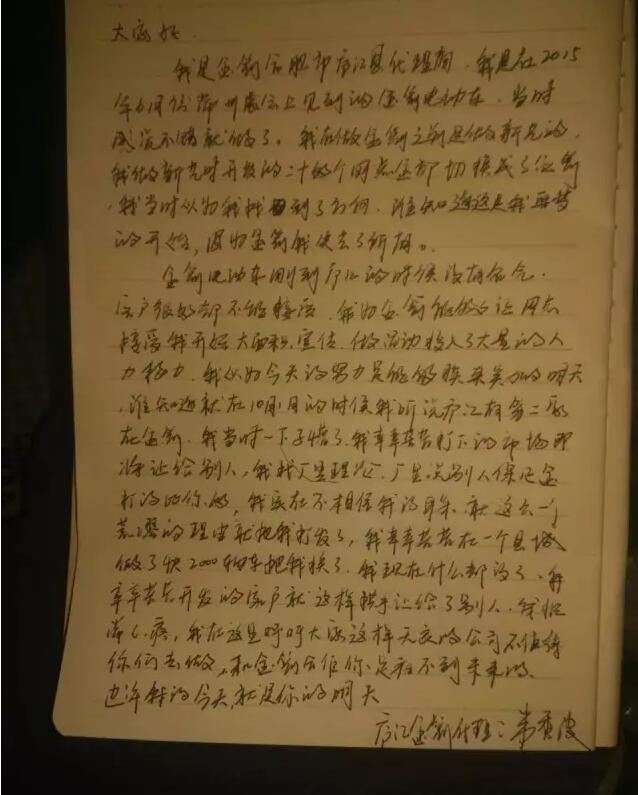 大家好
我是金箭合肥市庐江县代理商，我是在2015
年6月份郑州展会上见到的金箭电动车，当时
感觉不错就做了。我在做金箭之前是做新光的，
我做新光时开发的二十多个网点全部切换成了金箭
，我当时以为我找到了方向，谁知道这是我噩梦
的开始，因为金箭我失去了所有。
金箭电动车刚到庐江的时候没有名气，
客户很多都不能接受，我为金箭能够让网点
接受我开始大面积宣传、做活动投入了大量的人
力物力，我以为今天的努力是能够换来美好的明天
，谁知道就在10月1月的时候我听说庐江有第二家
在金箭，我当时一下子懵了，我辛辛苦苦打下的市场即
将让给别人，我找厂里理论，厂里说别人保证金
打的比你多，我实在不相信我的耳朵，就这么一个
荒谬的理由就把我打发了，我辛辛苦苦在一个县城
做了快2000辆车把我换了，我现在什么都没了，我
辛辛苦苦开发的客户就这样拱手让给了别人，我非
常心疼，我在这里呼吁大家这样无良的公司不值得
你们去做，和金箭合作你是看不到未来的，
也许我的今天就是你的明天
庐江金箭代理：